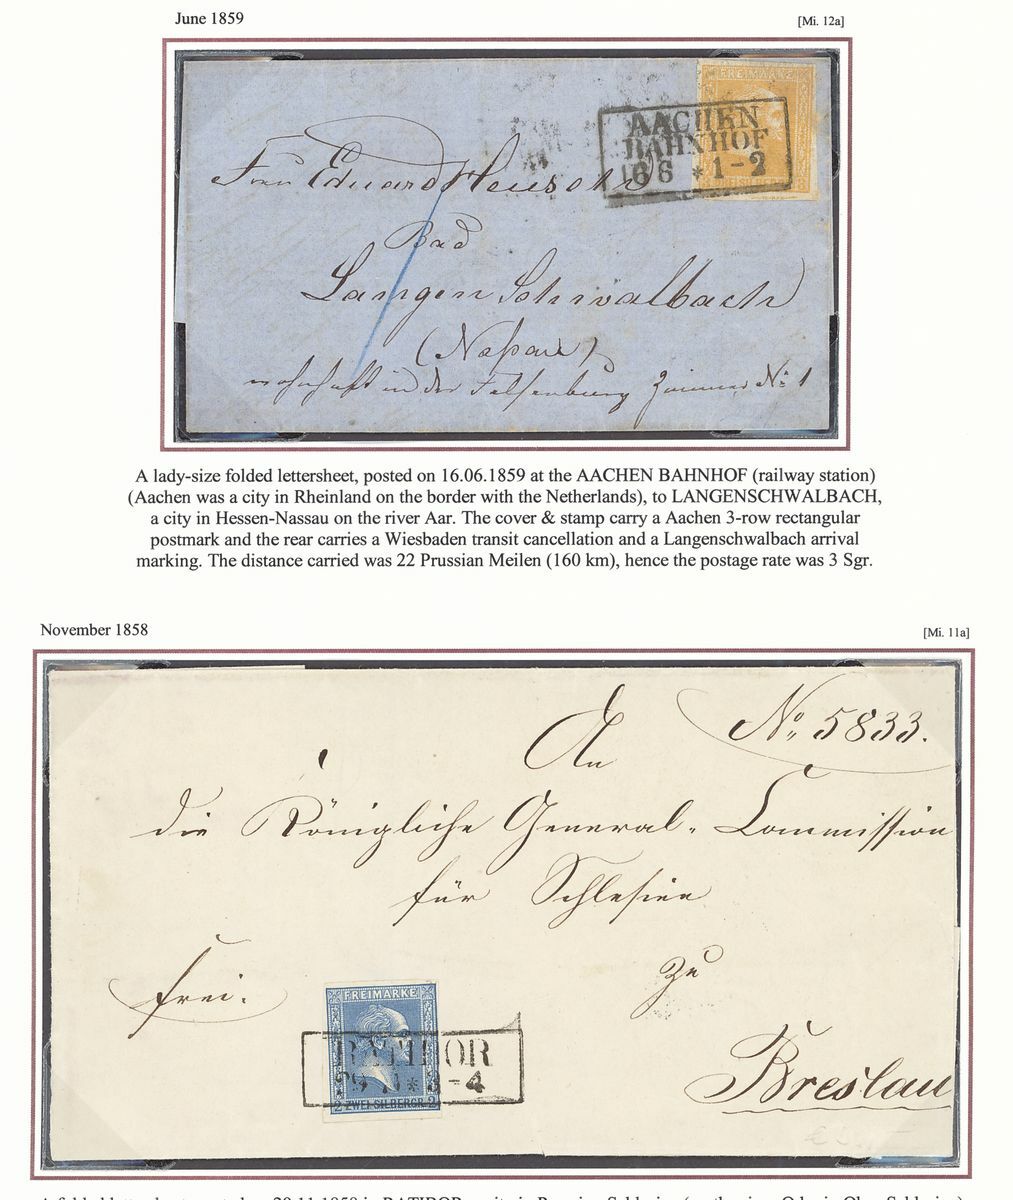 June 1859
[Mi. 12a]
FREIMARKE
AACHEN
BAHNHOF
16 6 * 1-2
3 SILBERGR. 3
Frau Eduard Heusch
Bad
Langen Schwalbach
(Naßau)
wohnhaft in der Felsenburg Zimmer No 1
A lady-size folded lettersheet, posted on 16.06.1859 at the AACHEN BAHNHOF (railway station)
(Aachen was a city in Rheinland on the border with the Netherlands), to LANGENSCHWALBACH,
a city in Hessen-Nassau on the river Aar. The cover & stamp carry a Aachen 3-row rectangular
postmark and the rear carries a Wiesbaden transit cancellation and a Langenschwalbach arrival
marking. The distance carried was 22 Prussian Meilen (160 km), hence the postage rate was 3 Sgr.
November 1858
[Mi. 11a]
No 5833.
An
die Königliche General-Commission
für Schlesien
frei.
zu
Breslau
FREIMARKE
RATIBOR
29 11 * 3-4
2 ZWEI SILBERGR. 2